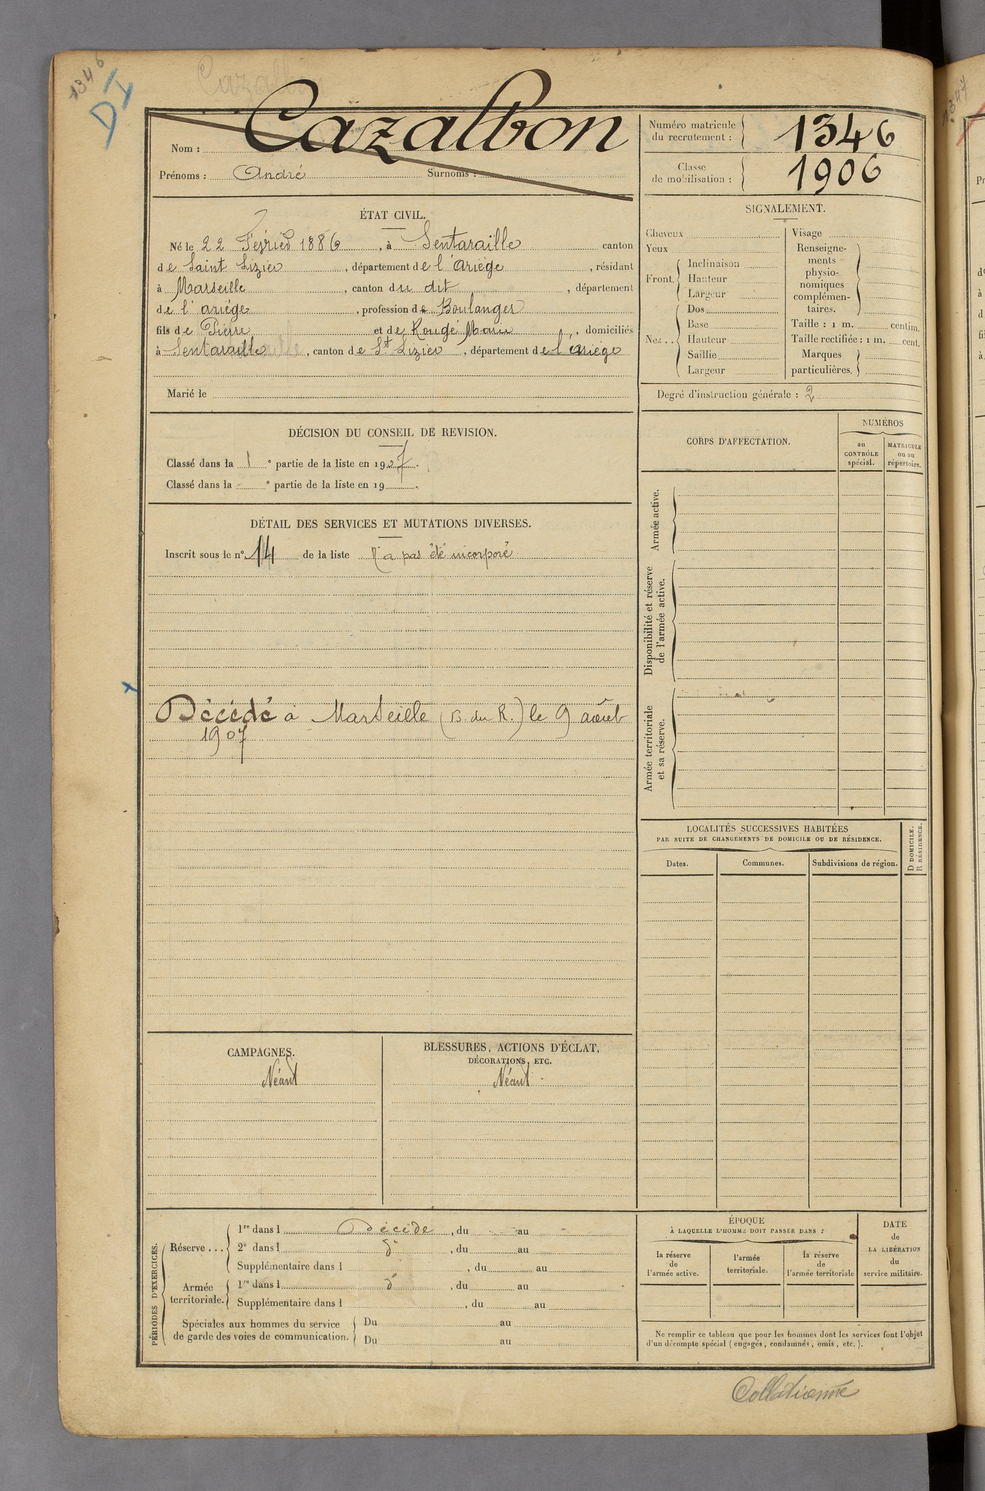 1346
DI
Cazalbon
Nom :
Prénoms : André Surnoms :
Numéro matricule du recrutement : 1346
Classe de mobilisation : 1906
ÉTAT CIVIL.
Né le 22 Février 1886, à Sentaraille canton
de Saint Lizier, département de l'Ariège, résidant
à Marseille, canton du dit, département
de l'ariège, profession de Boulanger
fils de Pierre et de Rougé Marie, domiciliés
à Sentaraille, canton de St Lizier, département de l'Ariège
Marié le
SIGNALEMENT.
Cheveux
Yeux
Front. Inclinaison
Hauteur
Largeur
Nez .. Dos
Base
Hauteur
Saillie
Largeur
Visage
Renseigne-
ments
physio-
nomiques
complémen-
taires.
Taille : 1 m. centim.
Taille rectifiée : 1 m. cent.
Marques
particulières.
Degré d'instruction générale : 2
DÉCISION DU CONSEIL DE REVISION.
Classé dans la 1e partie de la liste en 1907.
Classé dans la e partie de la liste en 19 .
DÉTAIL DES SERVICES ET MUTATIONS DIVERSES.
Inscrit sous le n° 14 de la liste N'a pas été incorporé
Décédé à Marseille (B. du R.) le 9 août
1907
CORPS D'AFFECTATION.
NUMÉROS
au
CONTRÔLE
spécial.
MATRICULE
ou au
répertoire.
Armée active.
Disponibilité et réserve
de l'armée active.
Armée territoriale
et sa réserve.
LOCALITÉS SUCCESSIVES HABITÉES
PAR SUITE DE CHANGEMENTS DE DOMICILE OU DE RÉSIDENCE.
Dates.
Communes.
Subdivisions de région.
D DOMICILE.
R RÉSIDENCE.
CAMPAGNES.
Néant
BLESSURES, ACTIONS D'ÉCLAT,
DÉCORATIONS, ETC.
Néant
PÉRIODES D'EXERCICES.
Réserve ... 1re dans l Décédé, du au
2e dans l do, du au
Supplémentaire dans l , du au
Armée
territoriale. 1re dans l do, du au
Supplémentaire dans l , du au
Spéciales aux hommes du service
de garde des voies de communication.
Du au
Du au
ÉPOQUE
À LAQUELLE L'HOMME DOIT PASSER DANS :
la réserve
de
l'armée active.
l'armée
territoriale.
la réserve
de
l'armée territoriale
DATE
de
LA LIBÉRATION
du
service militaire.
Ne remplir ce tableau que pour les hommes dont les services font l'objet
d'un décompte spécial (engagés, condamnés, omis, etc.).
Collationné